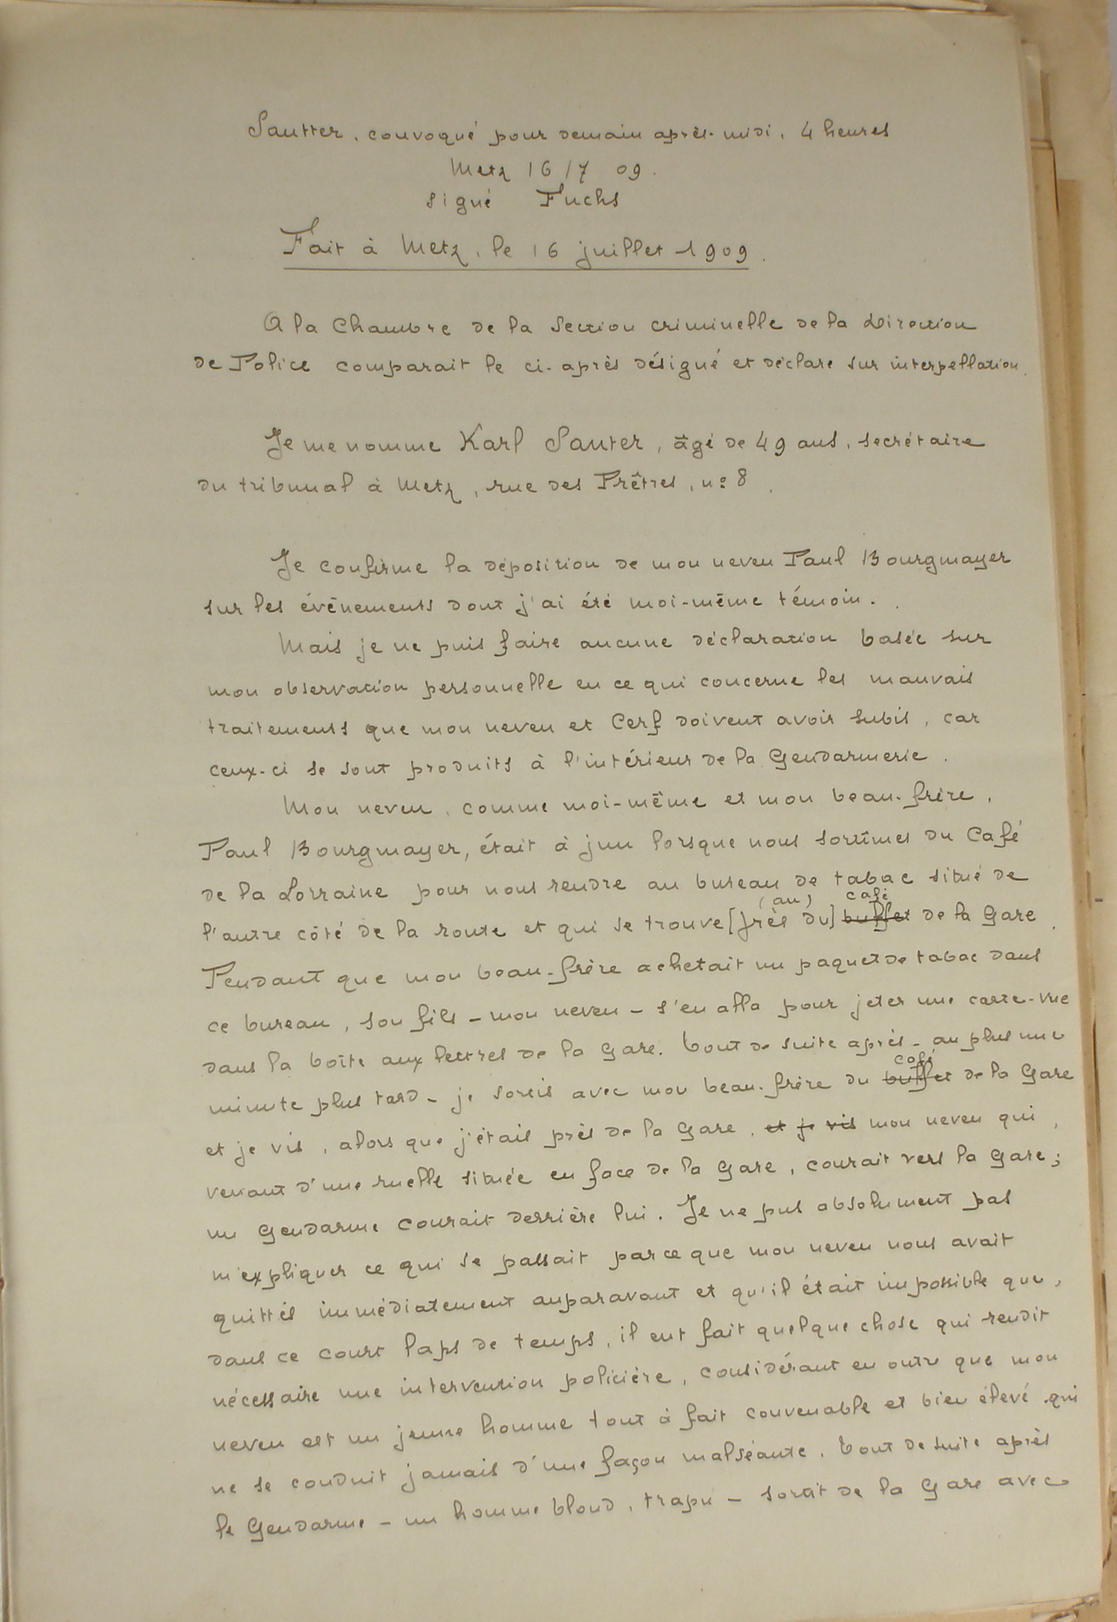 Sautter, convoqué pour demain après-midi, 4 heures
Metz 16/7 09.
signé Fuchs
Fait à Metz, le 16 juillet 1909.
A la Chambre de la Section criminelle de la Direction
de Police comparait le ci-après désigné et déclare sur interpellation.
Je me nomme Karl Sauter, âgé de 49 ans, secrétaire
du tribunal à Metz, rue des Prêtres, nº 8.
Je confirme la déposition de mon neveu Paul Bourgmayer
sur les évênements dont j'ai été moi-même témoin.
Mais je ne puis faire aucune déclaration basée sur
mon observation personnelle en ce qui concerne les mauvais
traitements que mon neveu et Cerf doivent avoir subis, car
ceux-ci se sont produits à l'intérieur de la Gendarmerie.
Mon neveu, comme moi-même et mon beau-frère,
Paul Bourgmayer, était à jun lorsque nous sortîmes du Café
de la Lorraine pour nous rendre au bureau de tabac situé de
l'autre côté de la route et qui se trouve [près du] (au) buffet café de la Gare.
Pendant que mon beau-frère achetait un paquet de tabac dans
ce bureau, son fils - mon neveu - s'en alla pour jeter une carte-vue
dans la boîte aux lettres de la Gare. Tout de suite après - au plus une
minute plus tard - je sortis avec mon beau-frère du buffet café de la Gare
et je vis, alors que j'étais près de la Gare, et je vis mon neveu qui,
venant d'une ruelle située en face de la Gare, courait vers la Gare;
un Gendarme courait derrière lui. Je ne pus absolument pas
m'expliquer ce qui se passait parce que mon neveu nous avait
quittés immédiatement auparavant et qu'il était impossible que,
dans ce court laps de temps, il eut fait quelque chose qui rendit
nécessaire une intervention policière, considérant en outre que mon
neveu est un jeune homme tout à fait convenable et bien élevé qui
ne se conduit jamais d'une façon malséante. Tout de suite après
le Gendarme - un homme blond, trapu - sortit de la Gare avec